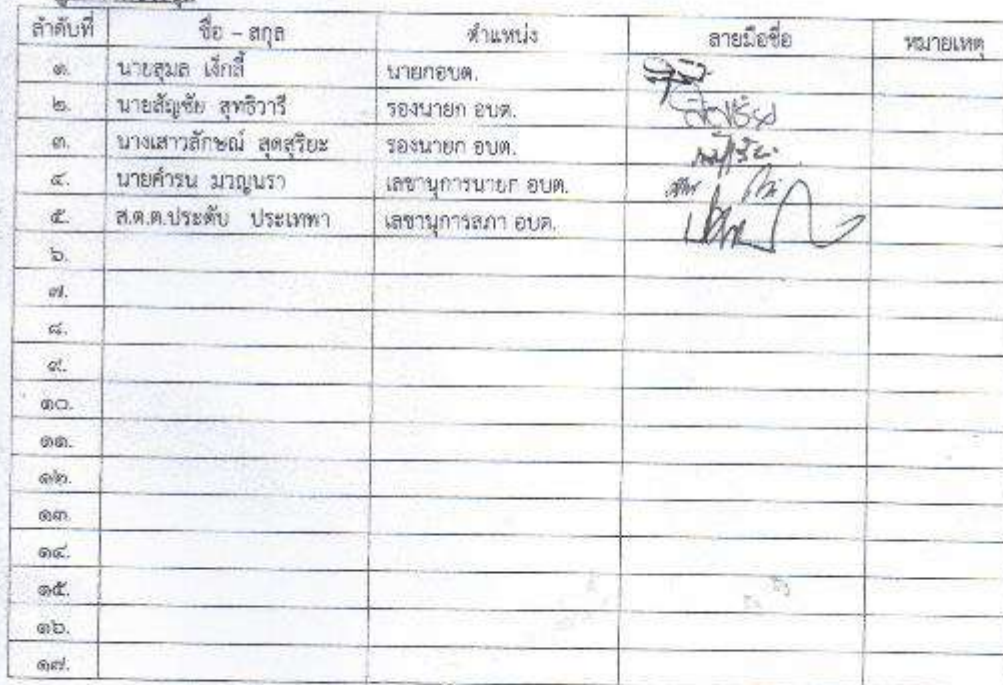 ลำดับที่ ชื่อ – สกุล ตำแหน่ง ลายมือชื่อ หมายเหตุ
๑. นายสุมล เจ็กสี้ นายกอบต.
๒. นายสัญชัย สุทธิวารี รองนายก อบต. สัญชัย
๓. นางเสาวลักษณ์ สุดสุริยะ รองนายก อบต.
๔. นายคำรน มวญนรา เลขานุการนายก อบต.
๕. ส.ต.ต.ประดับ ประเทพา เลขานุการสภา อบต.
๖.
๗.
๘.
๙.
๑๐.
๑๑.
๑๒.
๑๓.
๑๔.
๑๕.
๑๖.
๑๗.